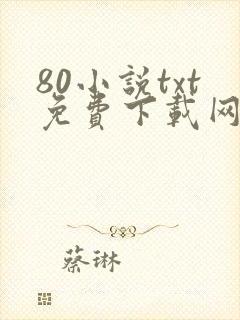 80小説txt
免費下載网
蔡琳